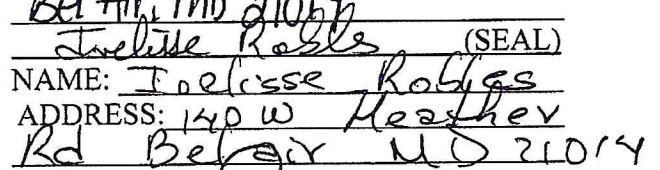 Bel Air, MD
Ivelisse Robls (SEAL)
NAME: Ivelisse Robles
ADDRESS: 140 W Heather
Rd Belair MD 21014